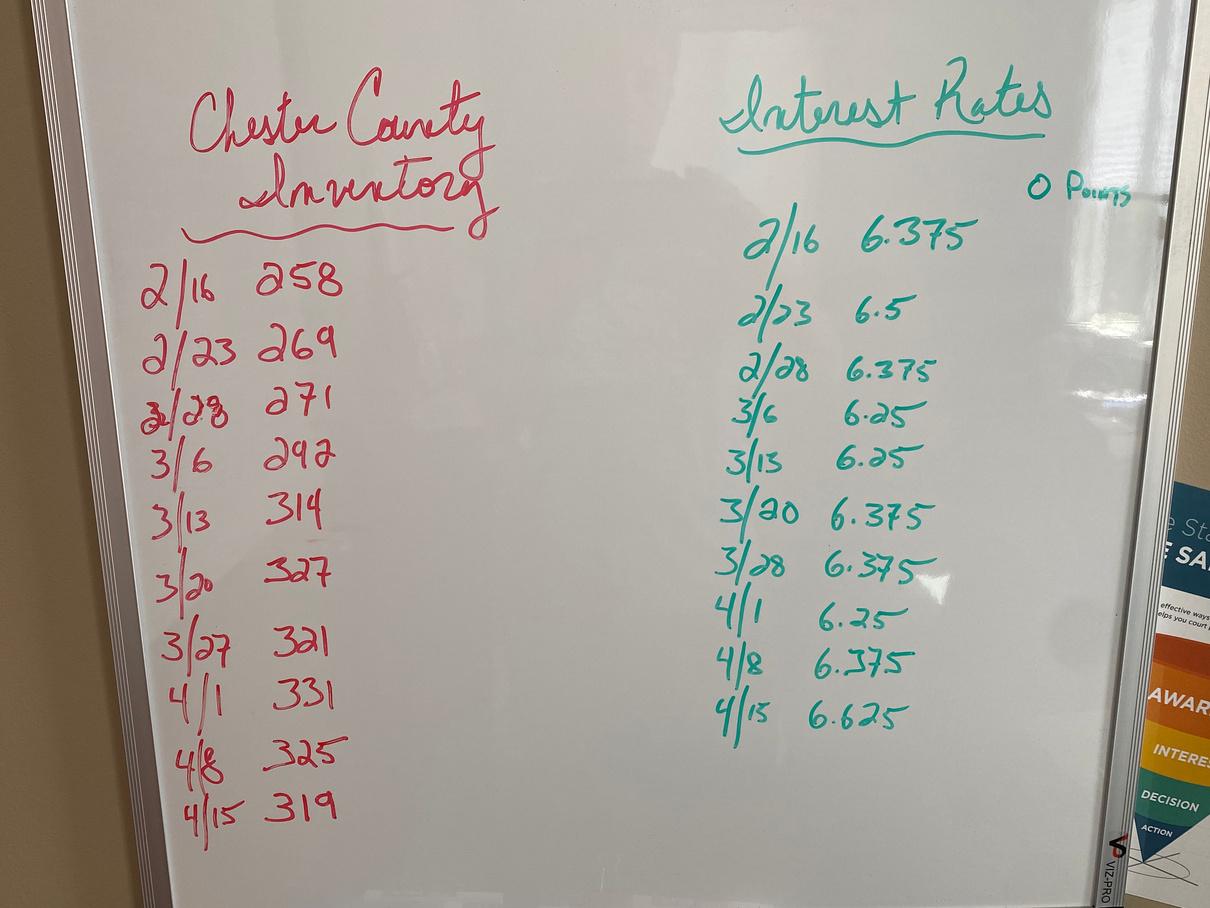 Chester County
Inventory
2/16 258
2/23 269
2/28 271
3/6 292
3/13 314
3/20 327
3/27 321
4/1 331
4/8 325
4/15 319
Interest Rates
0 Points
2/16 6.375
2/23 6.5
2/28 6.375
3/6 6.25
3/13 6.25
3/20 6.375
3/28 6.375
4/1 6.25
4/8 6.375
4/15 6.625
effective ways
elps you court
AWAR
INTERE
DECISION
ACTION
VIZ-PRO